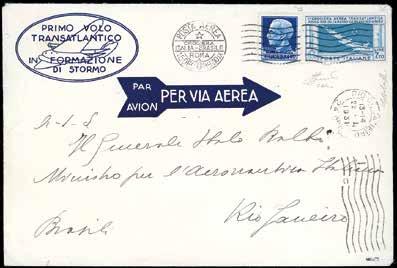 PRIMO VOLO
TRANSATLANTICO
IN FORMAZIONE
DI STORMO
POSTA AEREA
CROCIERA
ITALIA-BRASILE
ROMA
POSTE ITALIANE
PAR
AVION
PER VIA AEREA
A. S. S.
Il Generale Italo Balbo
Ministro per l'Aeronautica Italiana
Rio Janeiro
Brasile